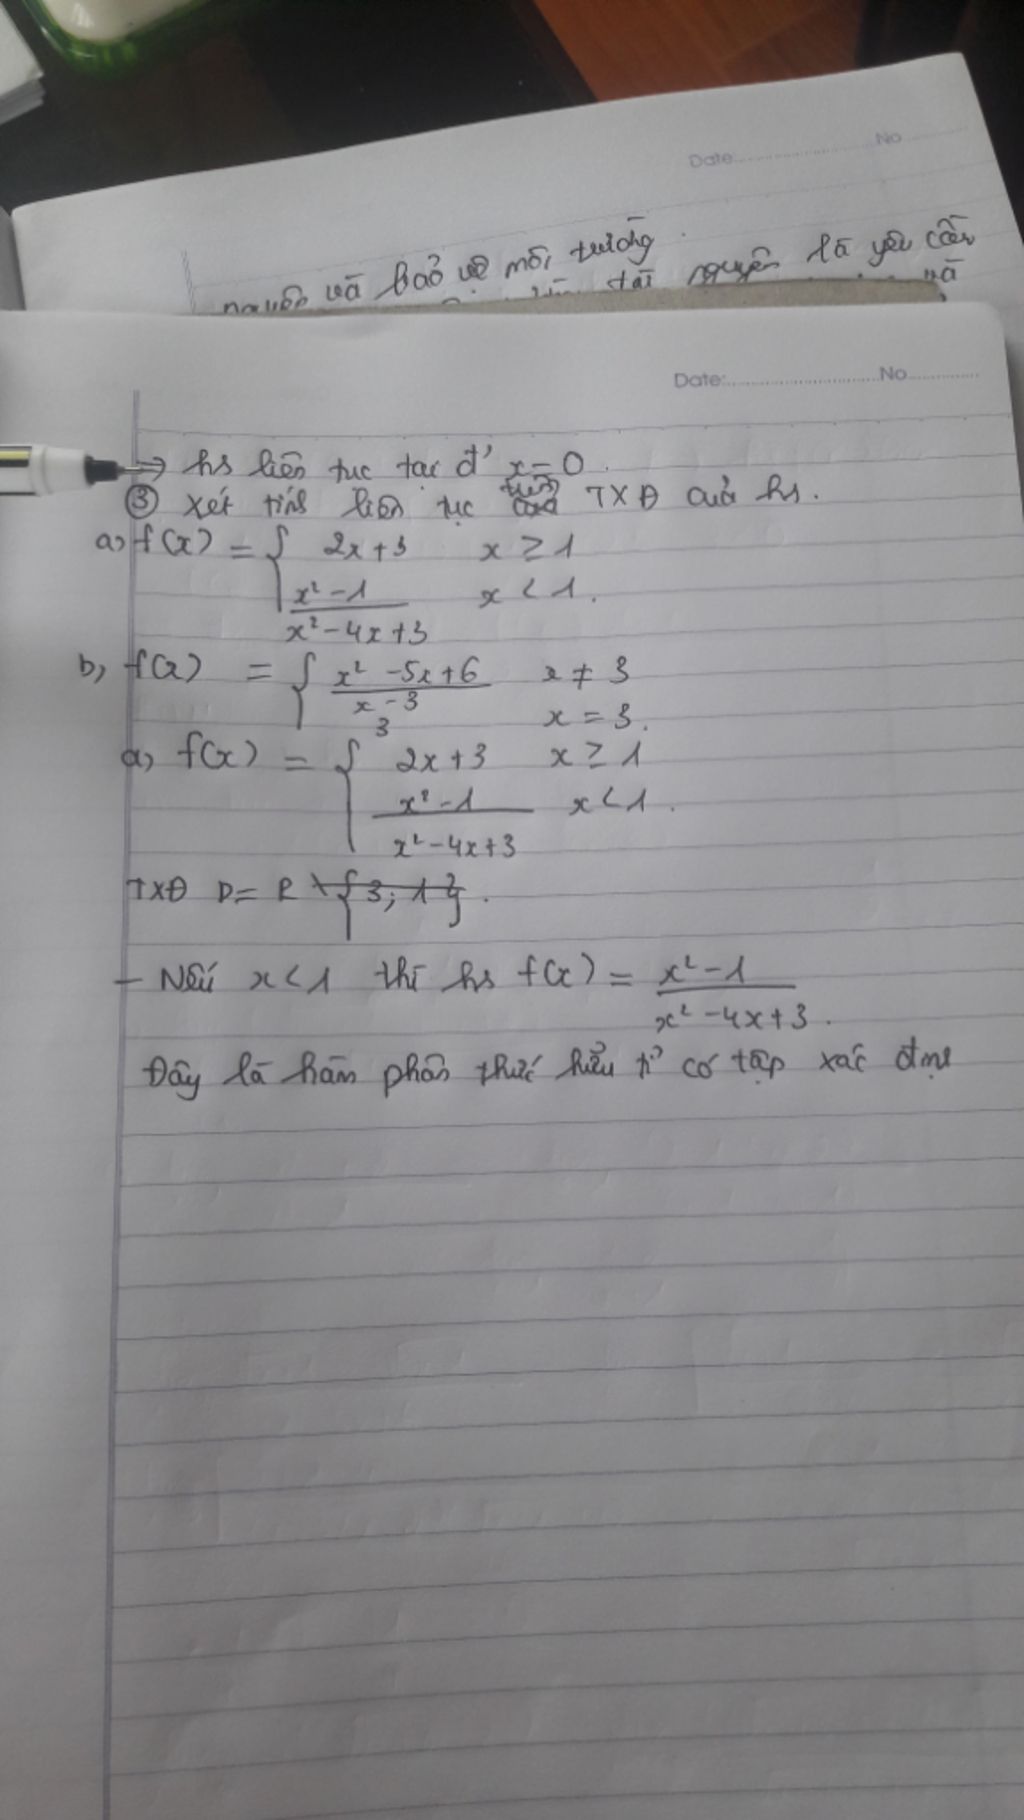 Date: No
nguyên và bảo vệ môi trường.
tài nguyên là yêu cầu
và
Date: No
=> hs liên tục tại đ' x = 0.
③ xét tính liên tục trên TXĐ của hs.
a, f(x) = { 2x+3 x ≥ 1
x² - 1 / x² - 4x + 3 x < 1.
b, f(x) = { x² - 5x + 6 / x - 3 x ≠ 3
3 x = 3.
a, f(x) = { 2x+3 x ≥ 1
x² - 1 / x² - 4x + 3 x < 1.
TXĐ D = R \ {3; 1}.
- Nếu x < 1 thì hs f(x) = x² - 1 / x² - 4x + 3.
Đây là hàm phân thức hữu tỉ có tập xác định